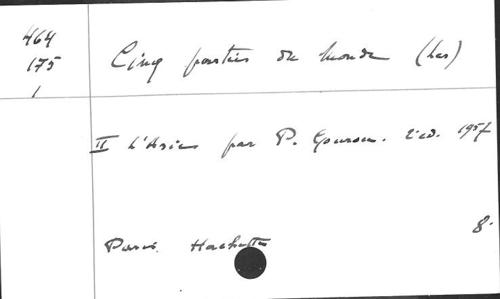 464
175
1
Cinq parties du monde (Les)
II L'Asie par P. Gourou. 2e ed. 1957
8.
Paris. Hachette